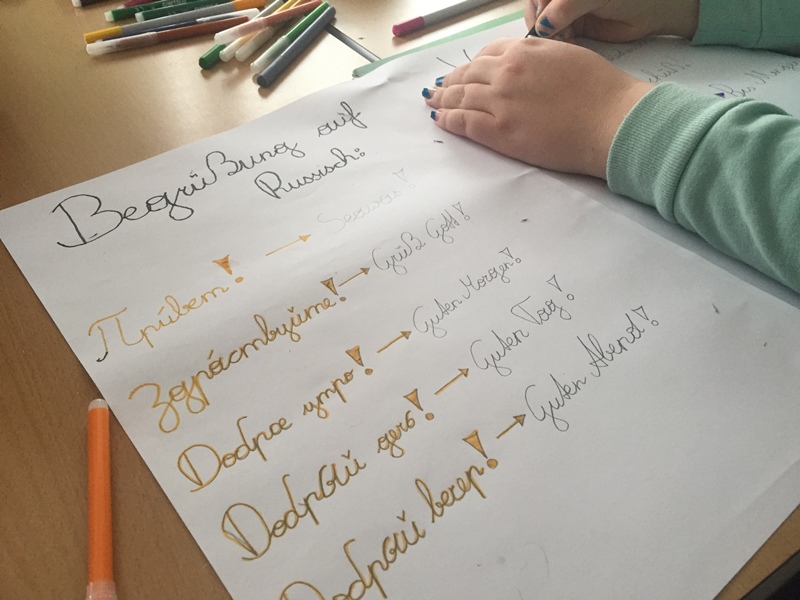 Begrüßung auf
Russisch:
Прúвет! → Servus!
Здрáствуйте! → Grüß Gott!
Доброе утро! → Guten Morgen!
Добрый день! → Guten Tag!
Добрый вечер! → Guten Abend!